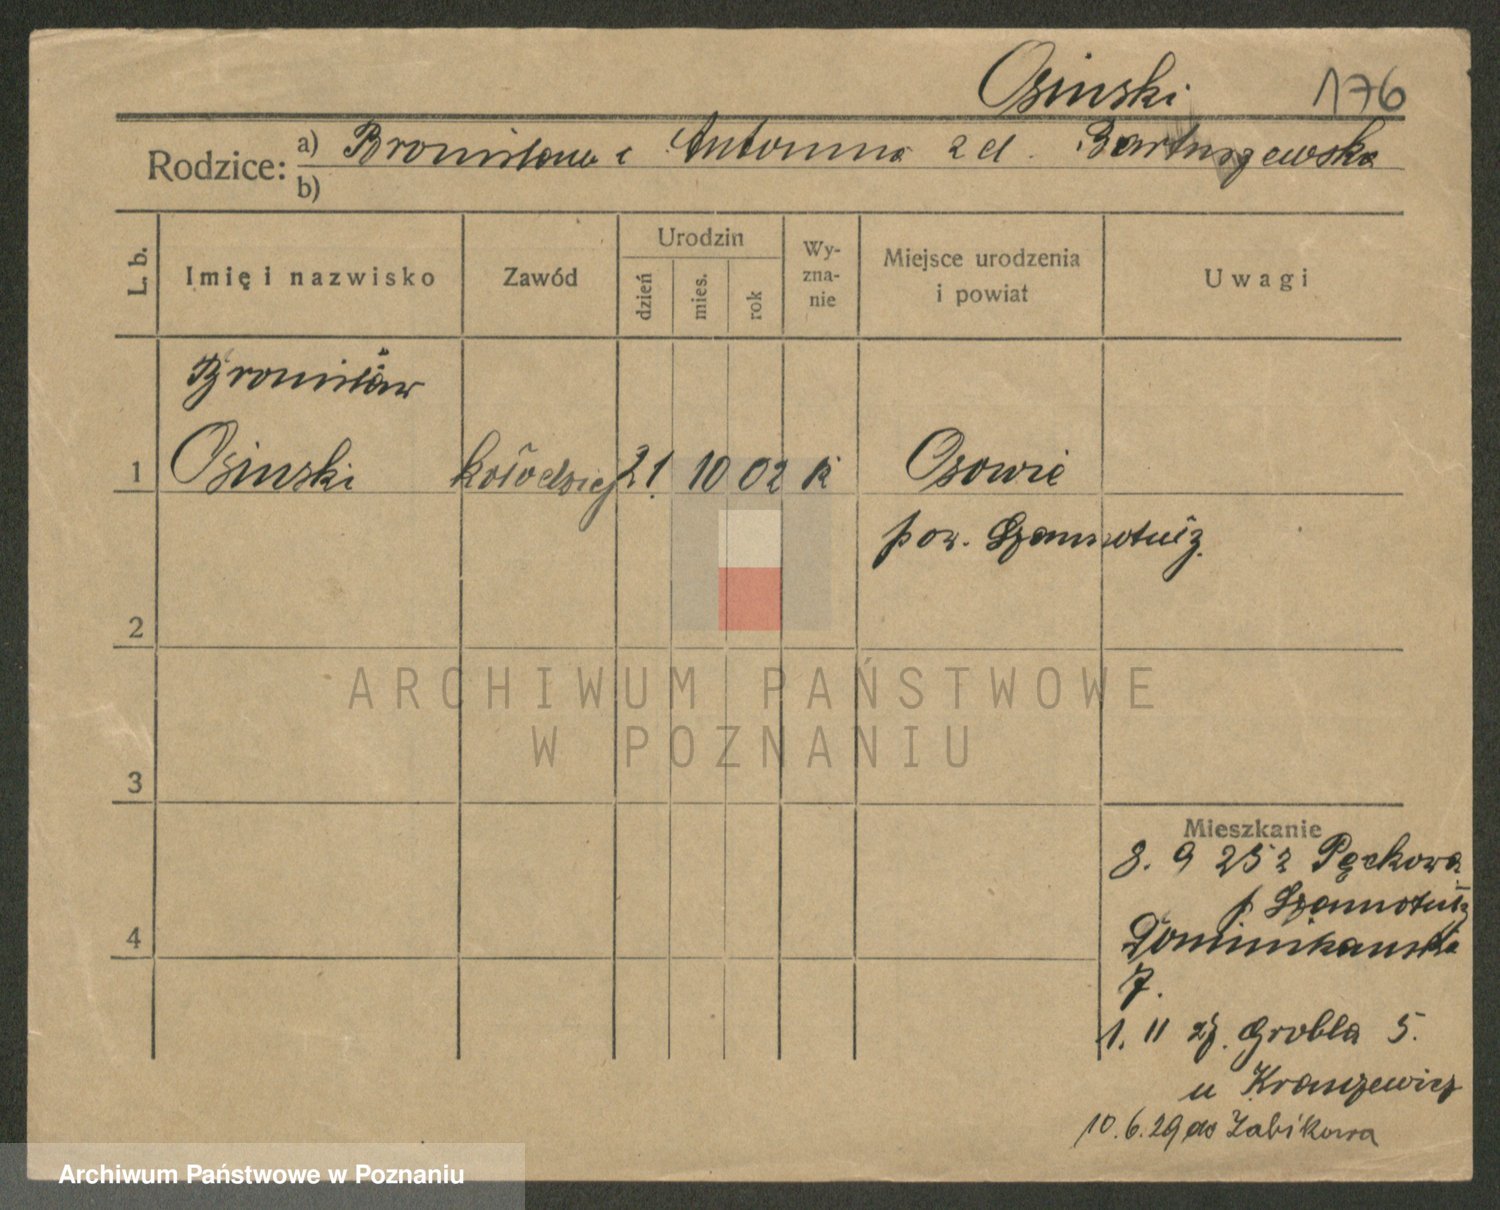 Osinski 176
Rodzice: a) Bronisława i Antonina z d. Bartuszewska
b)
L. b. Imię i nazwisko Zawód Urodzin dzień mies. rok Wyznanie Miejsce urodzenia i powiat Uwagi
Bronisław
1 Osinski kołodziej 21. 10 02 k Osowie
pow. Szamotuły
2
ARCHIWUM PAŃSTWOWE
W POZNANIU
3
Mieszkanie
8. 9 25 z Pęckowa
p Szamotuły
4 Dominikańska
7.
1. 11 Grobla 5.
u
10.6.29 do Żabikowa
Archiwum Państwowe w Poznaniu